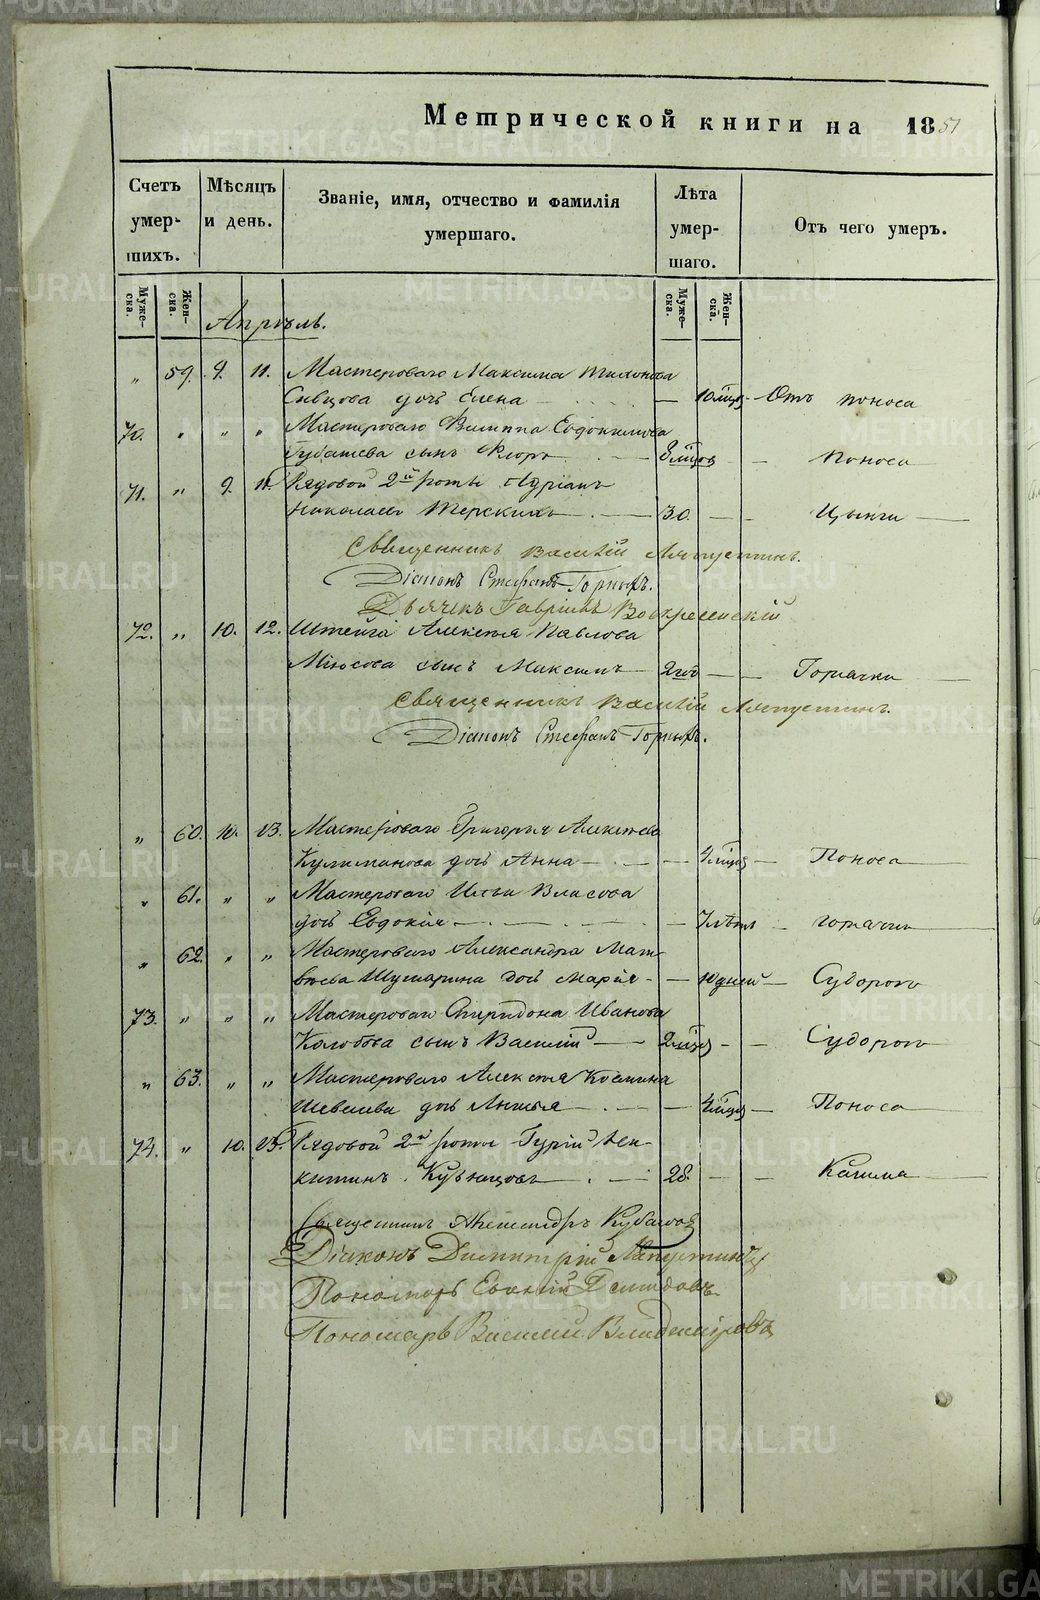 Метрической книги на 1851
Счетъ умер- шихъ.
Мѣсяцъ и день.
Званіе, имя, отчество и фамилія умершаго.
Лѣта умер- шаго.
Отъ чего умеръ.
Муже- ска. Жен- ска. Муже- ска. Жен- ска.
Апрѣль.
„ 59. 9. 11. Мастероваго Максима Тихонова
Сивцова дочь Елена — 10 мѣцъ — Отъ поноса
70. „ „ „ Мастероваго Филиппа Евдокимова
сынъ — 8 мѣцов — Поноса
71. „ 9. 11. Рядовой 2й роты Адріанъ
Николаевъ Терскихъ — 30. — Цынги
Священникъ Василій Ляпустинъ.
Діаконъ Стефанъ Горныхъ.
Дьячекъ Гавріилъ Воскресенскій
72. „ 10. 12. Штейга Алексѣя Павлова
сынъ Максимъ — 2 год — Горячки
Священникъ Василій Ляпустинъ.
Діаконъ Стефанъ Горныхъ.
„ 60. 10. 13. Мастероваго Григорья Алексѣева
дочь Анна — 4 мѣцъ — Поноса
„ 61. „ „ Мастероваго Ильи Власова
дочь Евдокія — 7 лѣтъ — горячки
„ 62. „ „ Мастероваго Александра Мат-
вѣева Шушарина дочь Марія — 10 дней — Судорого
73. „ „ „ Мастероваго Спиридона Иванова
Колобова сынъ Василій — 2 мѣцъ — Судорого
„ 63. „ „ Мастероваго Алексѣя Козмина
Шевелева дочь — 4 мѣцъ — Поноса
74. „ 10. 13. Рядовой 2й роты Гурій
Кузнецовъ — 28. — Кашля
Священникъ Александръ
Діаконъ Димитрій Ляпустинъ
Пономарь Демидовъ
Пономарь Василий Владиміровъ
METRIKI.GASO-URAL.RU